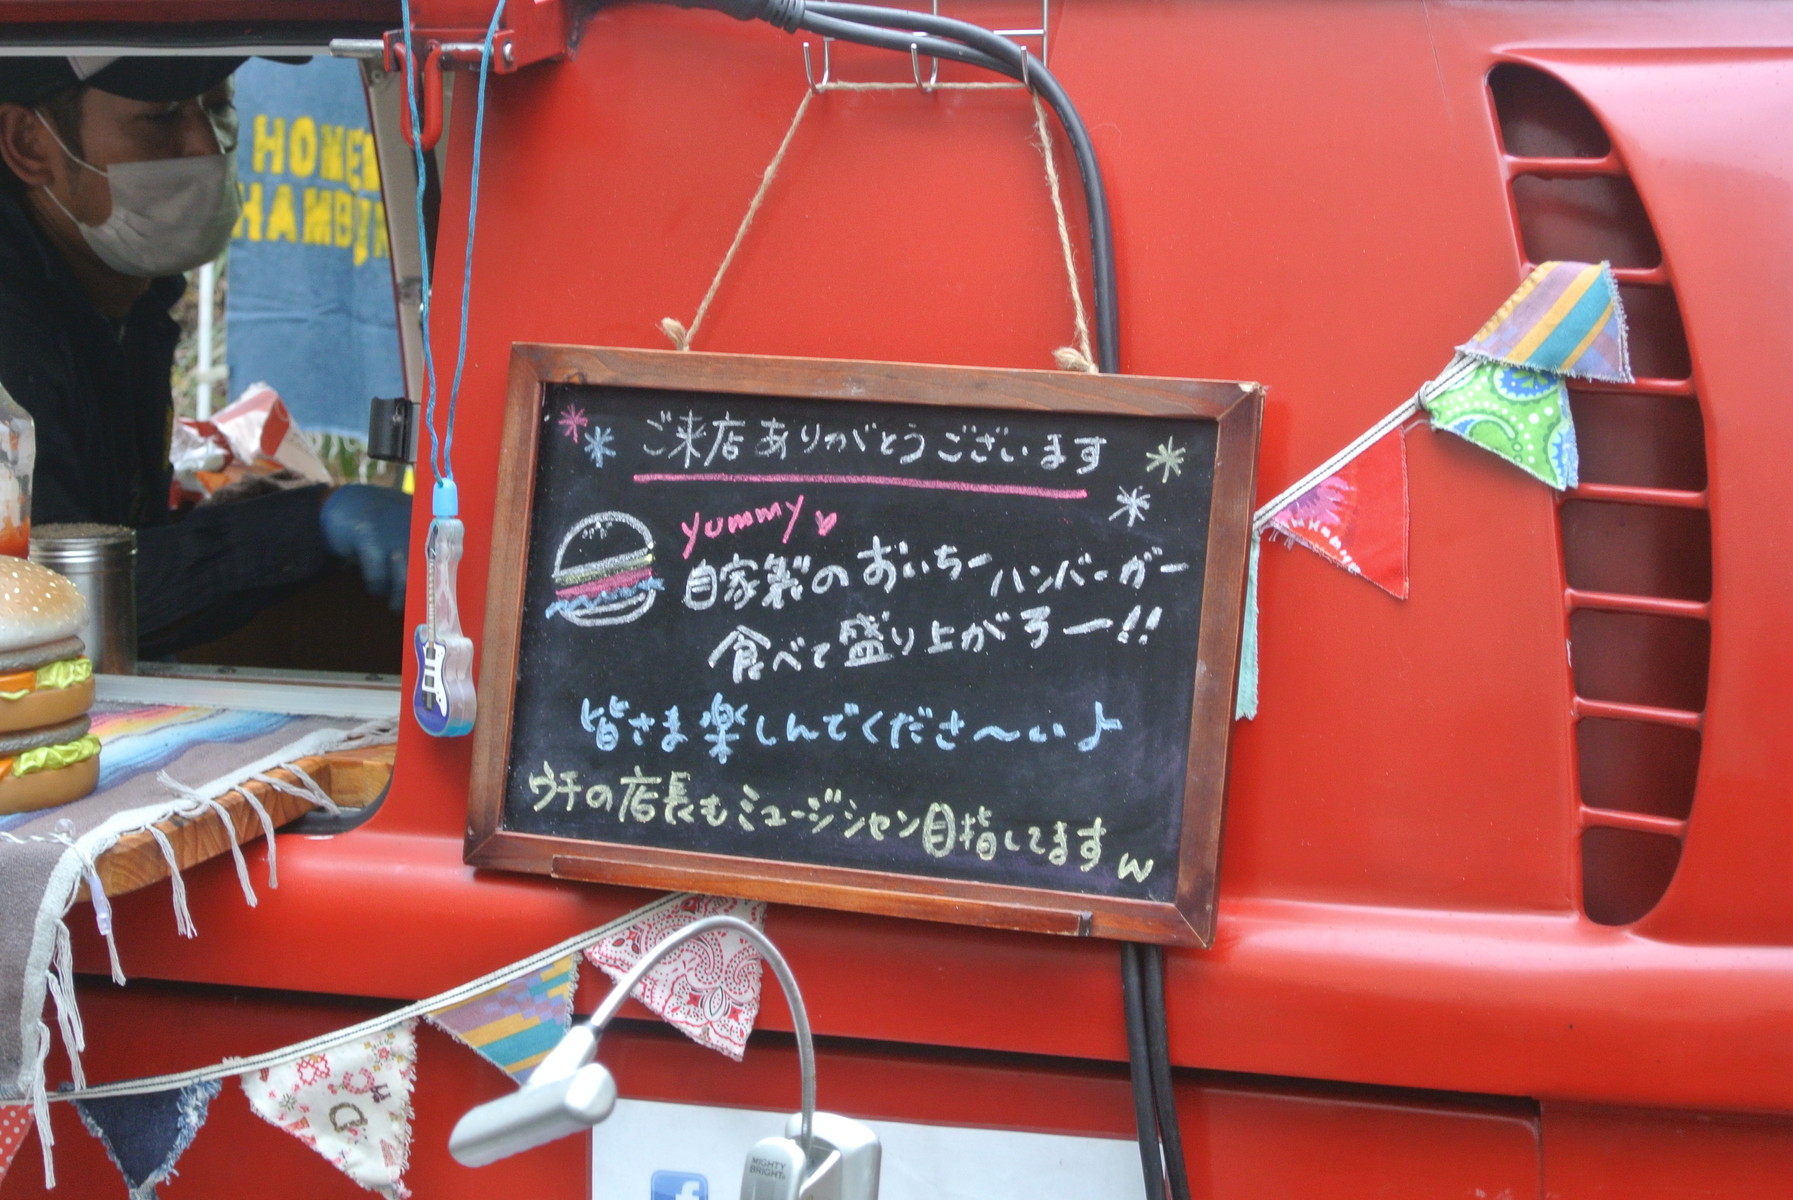 HOME
HAMBU
ご来店ありがとうございます
yummy
自家製のおいちーハンバーガー
食べて盛り上がろー!!
皆さま楽しんでくださ〜いよ
ウチの店長もミュージシャン目指してますw
MIGHTY
BRIGHT
f